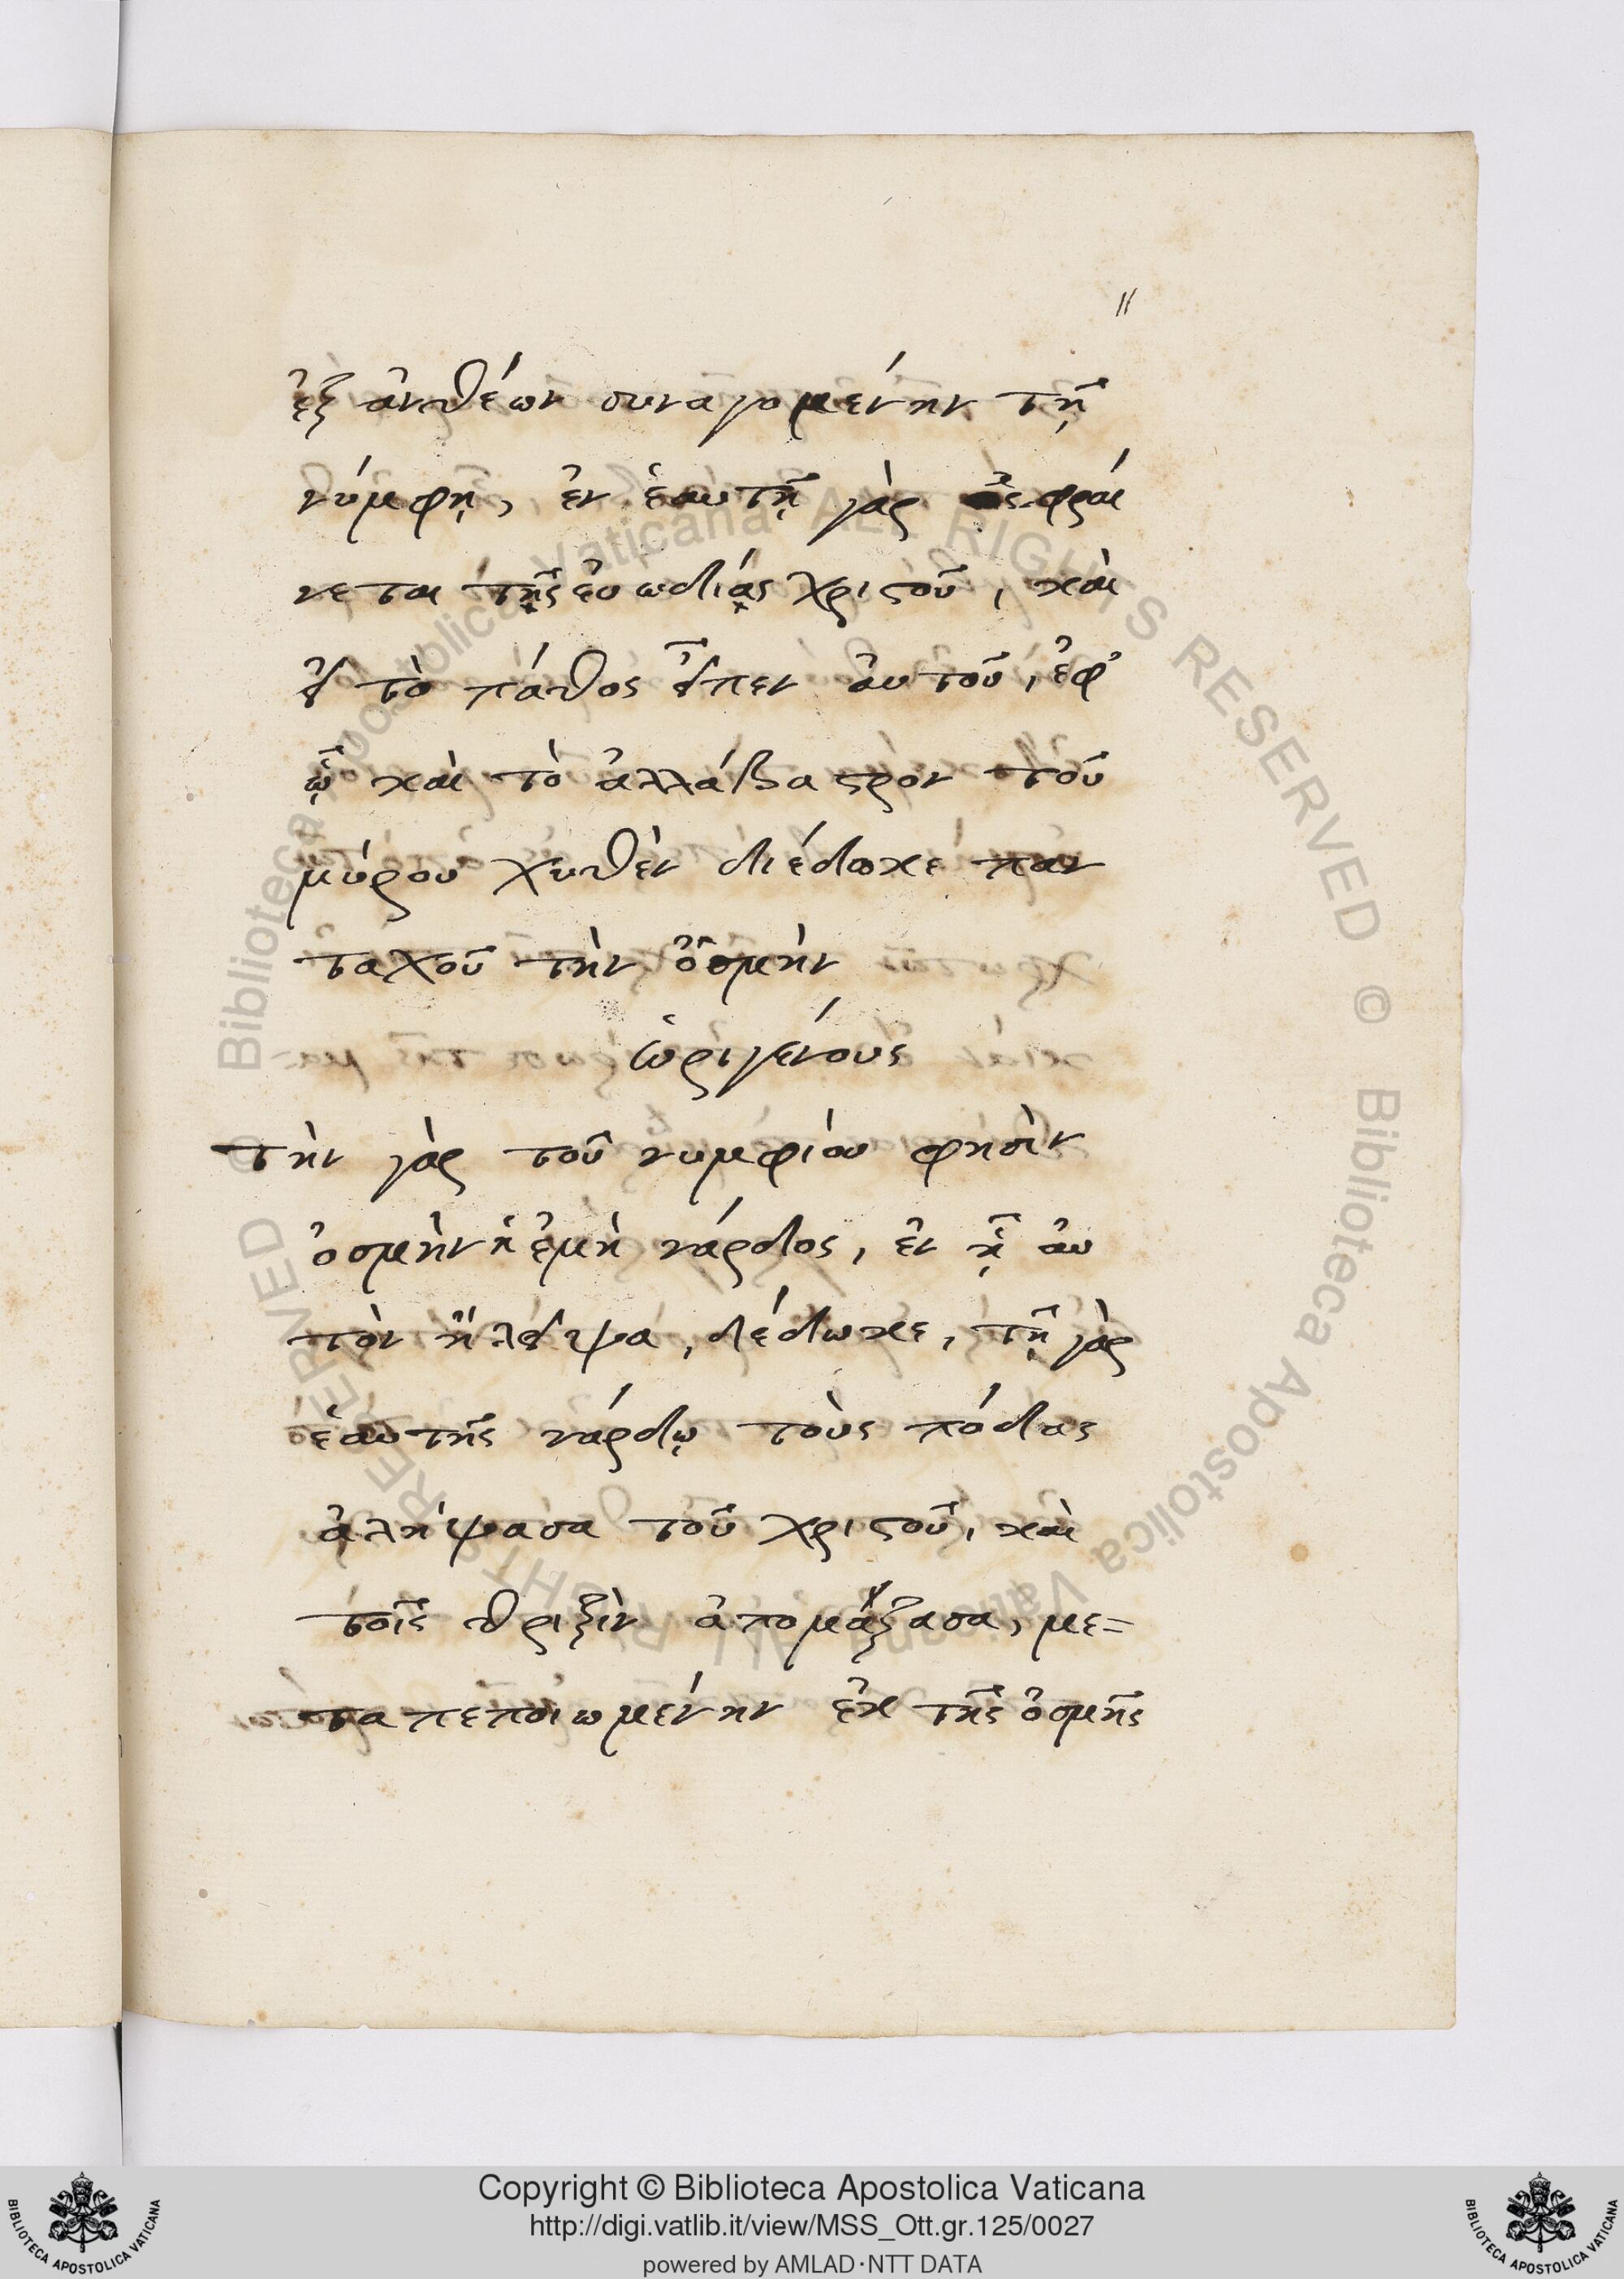 11
ἐξ ἀνθέων συναγομένην τῇ
νύμφῃ, ἐν ἑαυτῇ γὰρ ὀσφραί
νεται τῆς εὐωδίας χριστοῦ, καὶ
εἰ τὸ πάθος εἶπεν αὐτοῦ, ἐφ᾽
ᾧ καὶ τὸ ἀλλάβαστρον τοῦ
μύρου χυθὲν διέδωκε παν
ταχοῦ τὴν ὀσμὴν
ὠριγένους
τὴν γὰρ τοῦ νυμφίου φησὶν
ὀσμὴν ἡ ἐμὴ νάρδος, ἐν ᾗ αὐ
τὸν ἤλειψα, δέδωκε, τῇ γὰρ
ἑαυτῆς νάρδῳ τοὺς πόδας
ἀλήψασα τοῦ χριστοῦ, καὶ
τοῖς θριξὶν ἀπομάξασα, με=
ταπεποιωμένην ἐκ τῆς ὀσμῆς
© Biblioteca Apostolica Vaticana ALL RIGHTS RESERVED
© Biblioteca Apostolica Vaticana ALL RIGHTS RESERVED
BIBLIOTECA APOSTOLICA VATICANA
Copyright © Biblioteca Apostolica Vaticana
http://digi.vatlib.it/view/MSS_Ott.gr.125/0027
powered by AMLAD·NTT DATA
BIBLIOTECA APOSTOLICA VATICANA